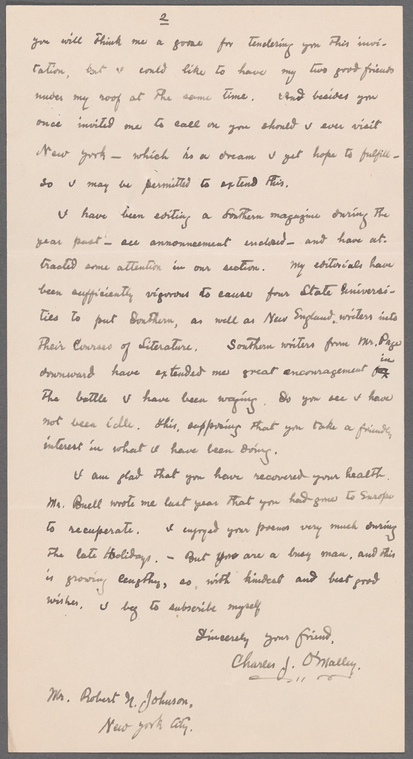 2
you will think me a goose for tendering you this invi-
tation, but I could like to have my two good friends
under my roof at the same time. And besides you
once invited me to call on you should I ever visit
New York — which is a dream I yet hope to fulfill —
so I may be permitted to extend this.
I have been editing a Southern magazine during the
year past — see announcement enclosed — and have at-
tracted some attention in our section. My editorials have
been sufficiently vigorous to cause four State Universi-
ties to put Southern, as well as New England, writers into
their Courses of Literature. Southern writers from Mr. Page
downward have extended me great encouragement in
the battle I have been waging. So you see I have
not been idle. This, supposing that you take a friendly
interest in what I have been doing.
I am glad that you have recovered your health.
Mr. Buell wrote me last year that you had gone to Europe
to recuperate. I enjoyed your poems very much during
the late Holidays. — But you are a busy man, and this
is growing lengthy, so, with kindest and best good
wishes, I beg to subscribe myself
Sincerely your friend,
Charles J. O'Malley.
Mr. Robert U. Johnson,
New York City.